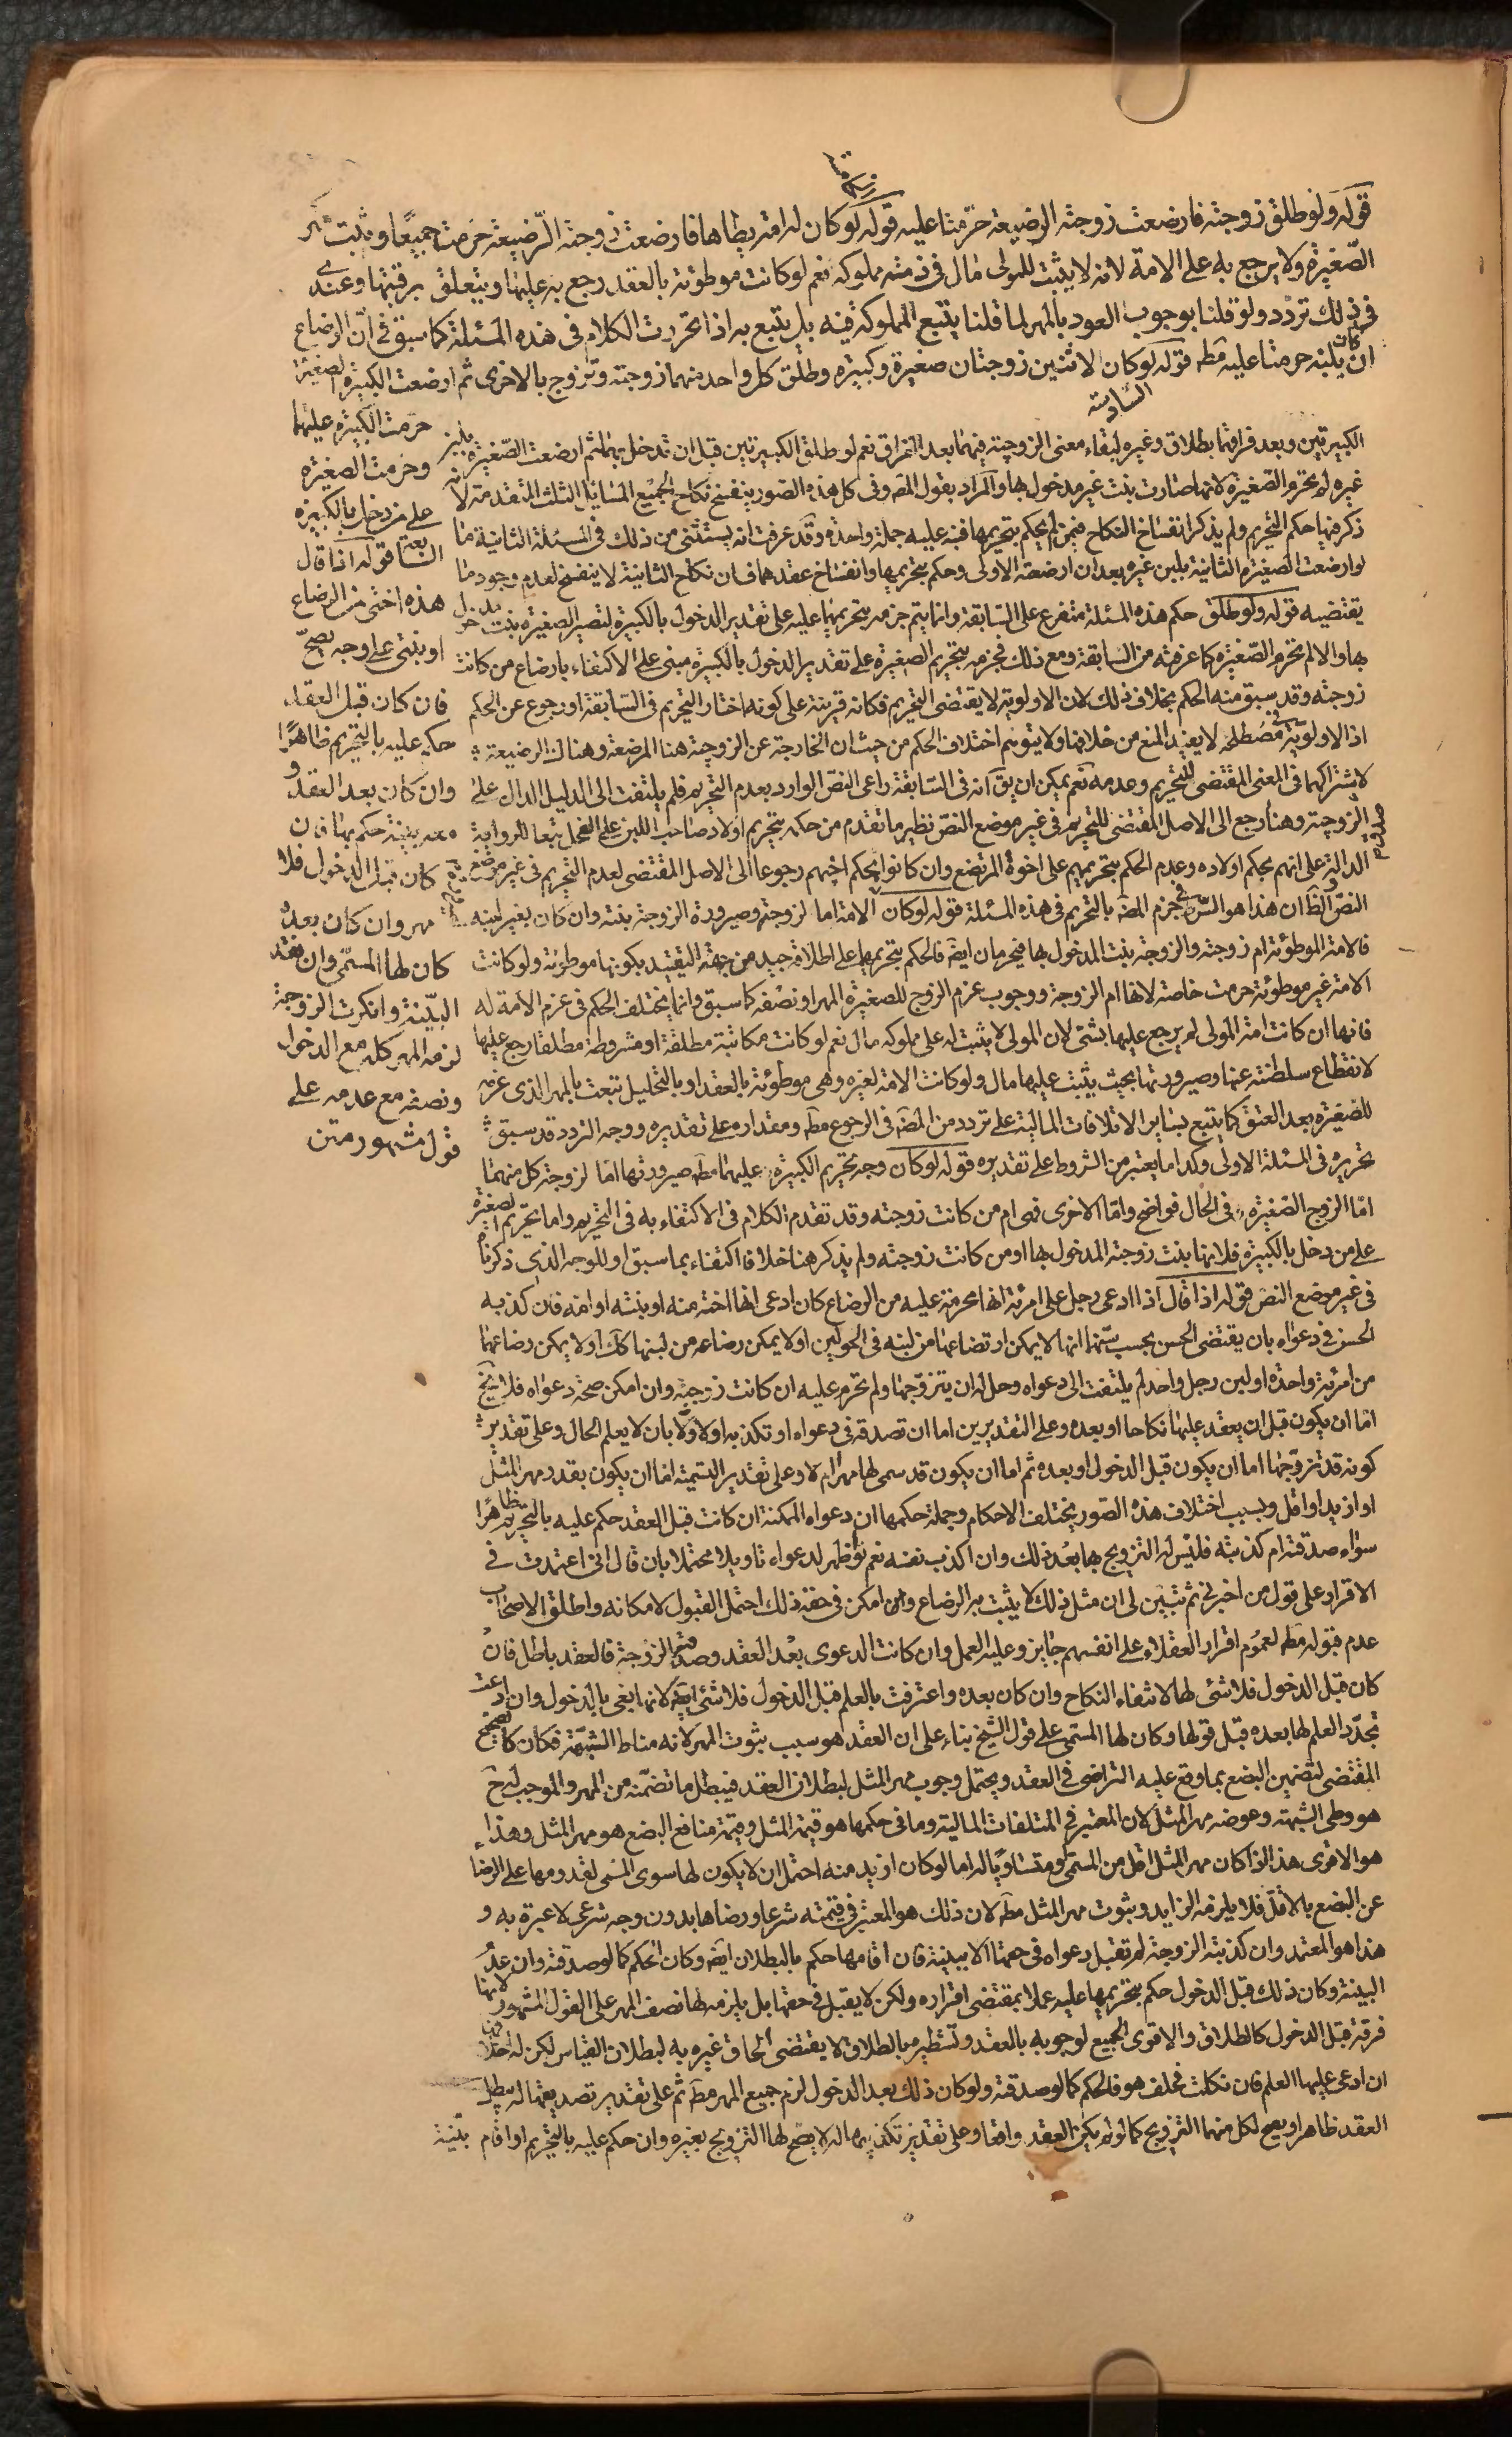 قوله ولو طلق زوجته فارضعت زوجته الرضيعة حرمتا عليه قوله لو كان له امة يطاها فارضعت زوجته الرضيعة حرمتا جميعا ويثبت مهر
الصغيرة ولا يرجع به على الامة لانه لا يثبت للمولى مال في ذمة مملوكه نعم لو كانت موطوئة بالعقد رجع به عليها ويتعلق برقبتها وعندي
في ذلك تردد ولو قلنا بوجوب العود بالمهر لما قلنا ببيع المملوكة فيه بل يتبع به اذا تحررت الكلام في هذه المسئلة كما سبق في ان الرضاع
ان كان بلبنه حرمتا عليه مطه قوله لو كان لاثنين زوجتان صغيرة وكبيرة وطلق كل واحد منهما زوجته وتزوج بالاخرى ثم ارضعت الكبيرة الصغيرة
السادسة
حرمت الكبيرة عليهما
وحرمت الصغيرة
على من دخل بالكبيرة
السابعة قوله اذا قال
هذه اختي من الرضاع
او بنتي على وجه يصح
فان كان قبل العقد
حكم عليه بالتحريم ظاهرا
وان كان بعد العقد و
معه بينة حكم بها فان
كان قبل الدخول فلا
مهر وان كان بعده
كان لها المسمى وان فقد
البينة وانكرت الزوجة
لزمه المهر كله مع الدخول
ونصفه مع عدمه على
قول مشهور متن
الكبيرتين وبعد فراقهما بطلاق وغيره لبقاء معنى الزوجية فيهما بعد الفراق نعم لو طلق الكبيرتين قبل ان تدخل بهما ثم ارضعت الصغيرة بلبن
غيره لم تحرم الصغيرة لانها صارت بنت غير مدخول بها والمراد بقول المصه وفي كل هذه الصور ينفسخ نكاح الجميع المسائل الثلث المتقدمة لانه
ذكر فيها حكم التحريم ولم يذكر انفساخ النكاح فيمن لم يحكم بتحريمها فنبه عليه جملة واحدة وقد عرفت انه يستثنى من ذلك في المسئلة الثانية ما
لو ارضعت الصغيرة الثانية بلبن غيره بعد ان ارضعته الاولى وحكم بتحريمها وانفساخ عقدهما فان نكاح الثانية لا ينفسخ لعدم وجود ما
يقتضيه قوله ولو طلق حكم هذه المسئلة متفرع على السابقة وانما يتم جزمه بتحريمها عليه على تقدير الدخول بالكبيرة لتصير الصغيرة بنت مدخول
بها والا لم تحرم الصغيرة كما عرفته من السابقة ومع ذلك فجزمه بتحريم الصغيرة على تقدير الدخول بالكبيرة مبنى على الاكتفاء بارضاع من كانت
زوجته وقد سبق منه الحكم بخلاف ذلك لان الاولوية لا يقتضى التحريم فكانه قرينة على كونه اختار التحريم في السابقة او رجوع عن الحكم
اذ الاولوية في مصطلحه لا يفيد المنع من خلافها ولا يتوهم اختلاف الحكم من حيث ان الخارجة عن الزوجية هنا المرضعة وهناك الرضيعة
لاشتراكهما في المعنى المقتضى للتحريم وعدمه نعم يمكن ان يق انه في السابقة راعى النص الوارد بعدم التحريم فلم يلتفت الى الدليل الدال على
الزوجية وهنا رجع الى الاصل المقتضى للتحريم في غير موضع النص نظير ما تقدم من حكمه بتحريم اولاد صاحب اللبن على الفحل تبعا للرواية
الدالة على انهم بحكم اولاده وعدم الحكم بتحريمهم على اخوة المرتضع وان كانوا بحكم اخيهم رجوعا الى الاصل المقتضى لعدم التحريم في غير موضع
النص والظ ان هذا هو السر في جزم المصه بالتحريم في هذه المسئلة قوله لو كان الامة اما لزوجته وصيرورة الزوجة بنته وان كان بغير لبنه
فالامة الموطوئة ام زوجته والزوجة بنت المدخول بها فيحرمان ايضه فالحكم بتحريمهما على اطلاقه جيد من جهة التقييد بكونها موطوئة ولو كانت
الامة غير موطوئة حرمت خاصة لانها ام الزوجة ووجوب غرم الزوج للصغيرة المهر او نصفه كما سبق وانما يختلف الحكم في غرم الامة له
فانها ان كانت امة المولى لم يرجع عليها بشئ لان المولى لا يثبت له على مملوكه مال نعم لو كانت مكاتبة مطلقة او مشروطة مطلقا رجع عليها
لانقطاع سلطنته عنها وصيرورتها بحيث يثبت عليها مال ولو كانت الامة لغيره وهي موطوئة بالعقد او بالتحليل تبعت بالمهر الذي غرمه
للصغيرة بعد العتق كما يتبع بساير الاتلافات المالية على تردد من المصه في الرجوع مطه ومقداره على تقديره ووجه التردد قد سبق
تحريره في المسئلة الاولى وكذا ما يعتبر من الشروط على تقديره قوله لو كان وجه تحريم الكبيرة عليهما مطه صيرورتها اما لزوجة كل منهما
اما الزوج الصغيرة في الحال فواضح واما الاخرى فهي ام من كانت زوجته وقد تقدم الكلام في الاكتفاء به في التحريم واما تحريم الصغيرة
على من دخل بالكبيرة فلانها بنت زوجته المدخول بها او من كانت زوجته ولم يذكر هنا خلافا اكتفاء بما سبق او للوجه الذي ذكرناه
في غير موضع النص قوله اذا قال اذا ادعى رجل على امرئة انها محرمة عليه من الرضاع كان ادعى انها اخته منه او بنته او امه فان كذبه
الحس في دعواه بان يقتضى الحس بحسب سنهما انها لا يمكن ارتضاعها من لبنه في الحولين او لا يمكن رضاعه من لبنها كك او لا يمكن رضاعهما
من امرئة واحدة او لبن رجل واحد لم يلتفت الى دعواه وحل له ان يتزوجها ولم تحرم عليه ان كانت زوجته وان امكن صحة دعواه فلا يخ
اما ان يكون قبل ان يعقد عليها نكاحا او بعده وعلى التقديرين اما ان تصدقه في دعواه او تكذبه او لا ولا بان لا يعلم الحال وعلى تقدير
كونه قد تزوجها اما ان يكون قبل الدخول او بعده ثم اما ان يكون قد سمى لها مهرا ام لا وعلى تقدير التسمية اما ان يكون بقدر مهر المثل
او ازيد او اقل وبسبب اختلاف هذه الصور يختلف الاحكام وجملة حكمها ان دعواه الممكنة ان كانت قبل العقد حكم عليه بالتحريم ظاهرا
سواء صدقته ام كذبته فليس له التزويج بها بعد ذلك وان اكذب نفسه نعم لو ظهر لدعواه تاويلا محتملا بان قال اني اعتمدت في
الاقرار على قول من اخبرني ثم تبين لى ان مثل ذلك لا يثبت به الرضاع وامكن في حقه ذلك احتمل القبول لامكانه واطلق الاصحاب
عدم قبوله مطه لعموم اقرار العقلاء على انفسهم جايز وعليه العمل وان كانت الدعوى بعد العقد وصدقته الزوجة فالعقد باطل فان
كان قبل الدخول فلا شئ لها لانتفاء النكاح وان كان بعده واعترفت بالعلم قبل الدخول فلا شئ ايضه لانها بغي بالدخول وان ادعت
تجدد العلم لها بعده قبل قولها وكان لها المسمى على قول الشيخ بناء على ان العقد هو سبب ثبوت المهر لانه مناط الشبهة فكان كالصحيح
المقتضى لتضمين البضع بما وقع عليه التراضى في العقد ويحتمل وجوب مهر المثل لبطلان العقد فيبطل ما تضمنه من المهر والموجب له ح
هو وطى الشبهة وعوضه مهر المثل لان المعتبر في المتلفات المالية وما في حكمها هو قيمة المثل وقيمة منافع البضع هو مهر المثل وهذا
هو الاقوى هذا اذا كان مهر المثل اقل من المسمى او متساويا له اما لو كان ازيد منه احتمل ان لا يكون لها سوى المسمى لقدومها على الرضا
عن البضع بالاقل فلا يلزمه الزايد وثبوت مهر المثل مطه لان ذلك هو المعتبر في قيمته شرعا ورضاها بدون وجه شرعى لا عبرة به و
هذا هو المعتمد وان كذبته الزوجة لم تقبل دعواه في حقها الا ببينة فان اقامها حكم بالبطلان ايضه وكان الحكم كما لو صدقته وان عدم
البينة وكان ذلك قبل الدخول حكم بتحريمها عليه عملا بمقتضى اقراره ولكن لا يقبل في حقها بل يلزمه لها نصف المهر على القول المشهور لانها
فرقة قبل الدخول كالطلاق والاقوى الجميع لوجوبه بالعقد وتشطيره بالطلاق لا يقتضى الحاق غيره به لبطلان القياس لكن له احلافها
ان ادعى عليها العلم فان نكلت فحلف هو فالحكم كما لو صدقته ولو كان ذلك بعد الدخول لزم جميع المهر مطه ثم على تقدير تصديقها له يبطل
العقد ظاهرا ويصح لكل منهما التزويج كما لو لم يكن العقد واقعا وعلى تقدير تكذيبها له لا يصح لها التزويج بغيره وان حكم عليه بالتحريم او اقام بينة